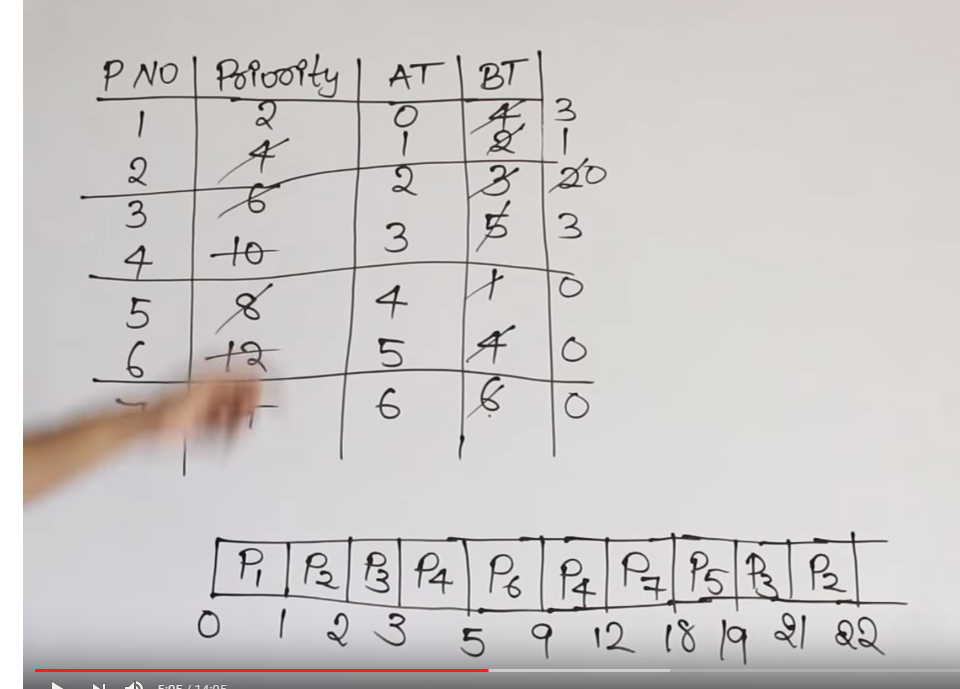 P NO Priority AT BT
1 2 0 4 3
2 4 1 2 1
3 6 2 3 2 0
4 10 3 5 3
5 8 4 1 0
6 12 5 4 0
6 6 0
P1 P2 P3 P4 P6 P4 P7 P5 P3 P2
0 1 2 3 5 9 12 18 19 21 22